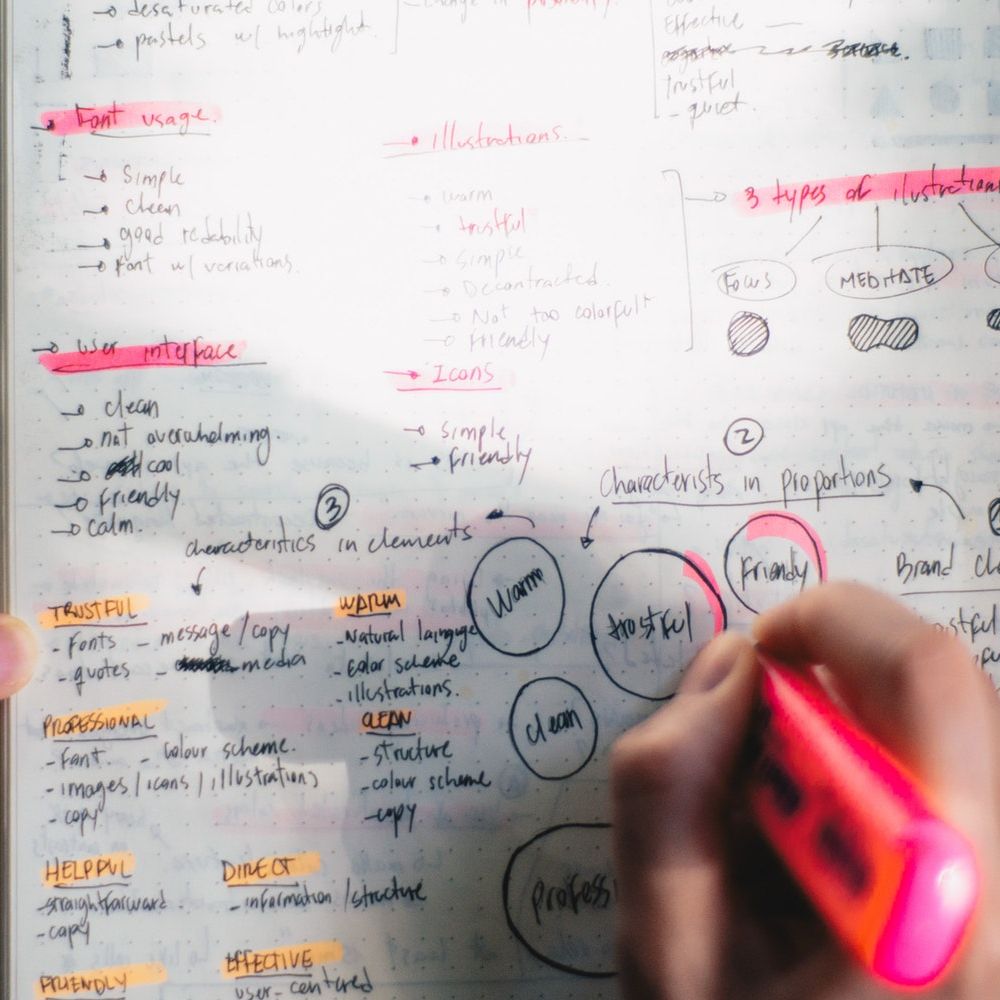 desaturated colors
pastels w/ hightlight.
Effective
trustful
- quiet.
Font usage.
Simple
clean
good redability
Font w/ variations.
Illustrations.
warm
trustful
Simple
Decontracted.
Not too colorful
Friendly
3 types of ilustration
Focus
MEDITATE
User interface
clean
not overwhelming.
cool
Friendly
calm
Icons
Simple
Friendly
2
Characterists in proportions
3
characteristics in elements
Warm
trostful
Friendly
clean
Brand
TRUSTFUL
- Fonts - message/copy
- quotes - media
WARM
- Natural language
- Color scheme
illustrations.
PROFESSIONAL
- Font. - Colour scheme.
- images/icons/illustrations
- copy
CLEAN
- structure
- colour scheme
- copy
HELPFUL
- straightforward
- copy
DIRECT
- information/structure
FRIENDLY
EFFECTIVE
user-centered